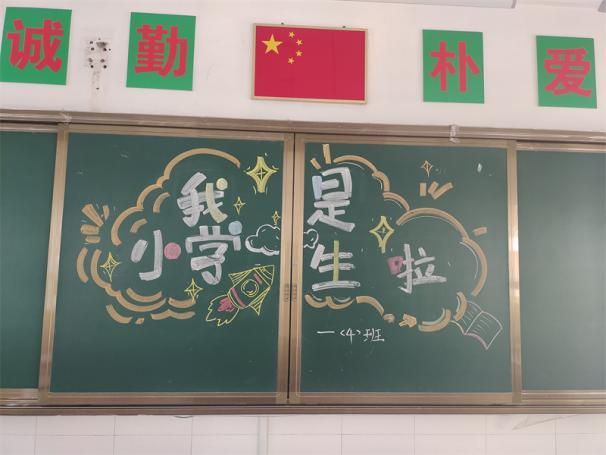 诚 勤 朴 爱
我是
小学生啦
一〈4〉班